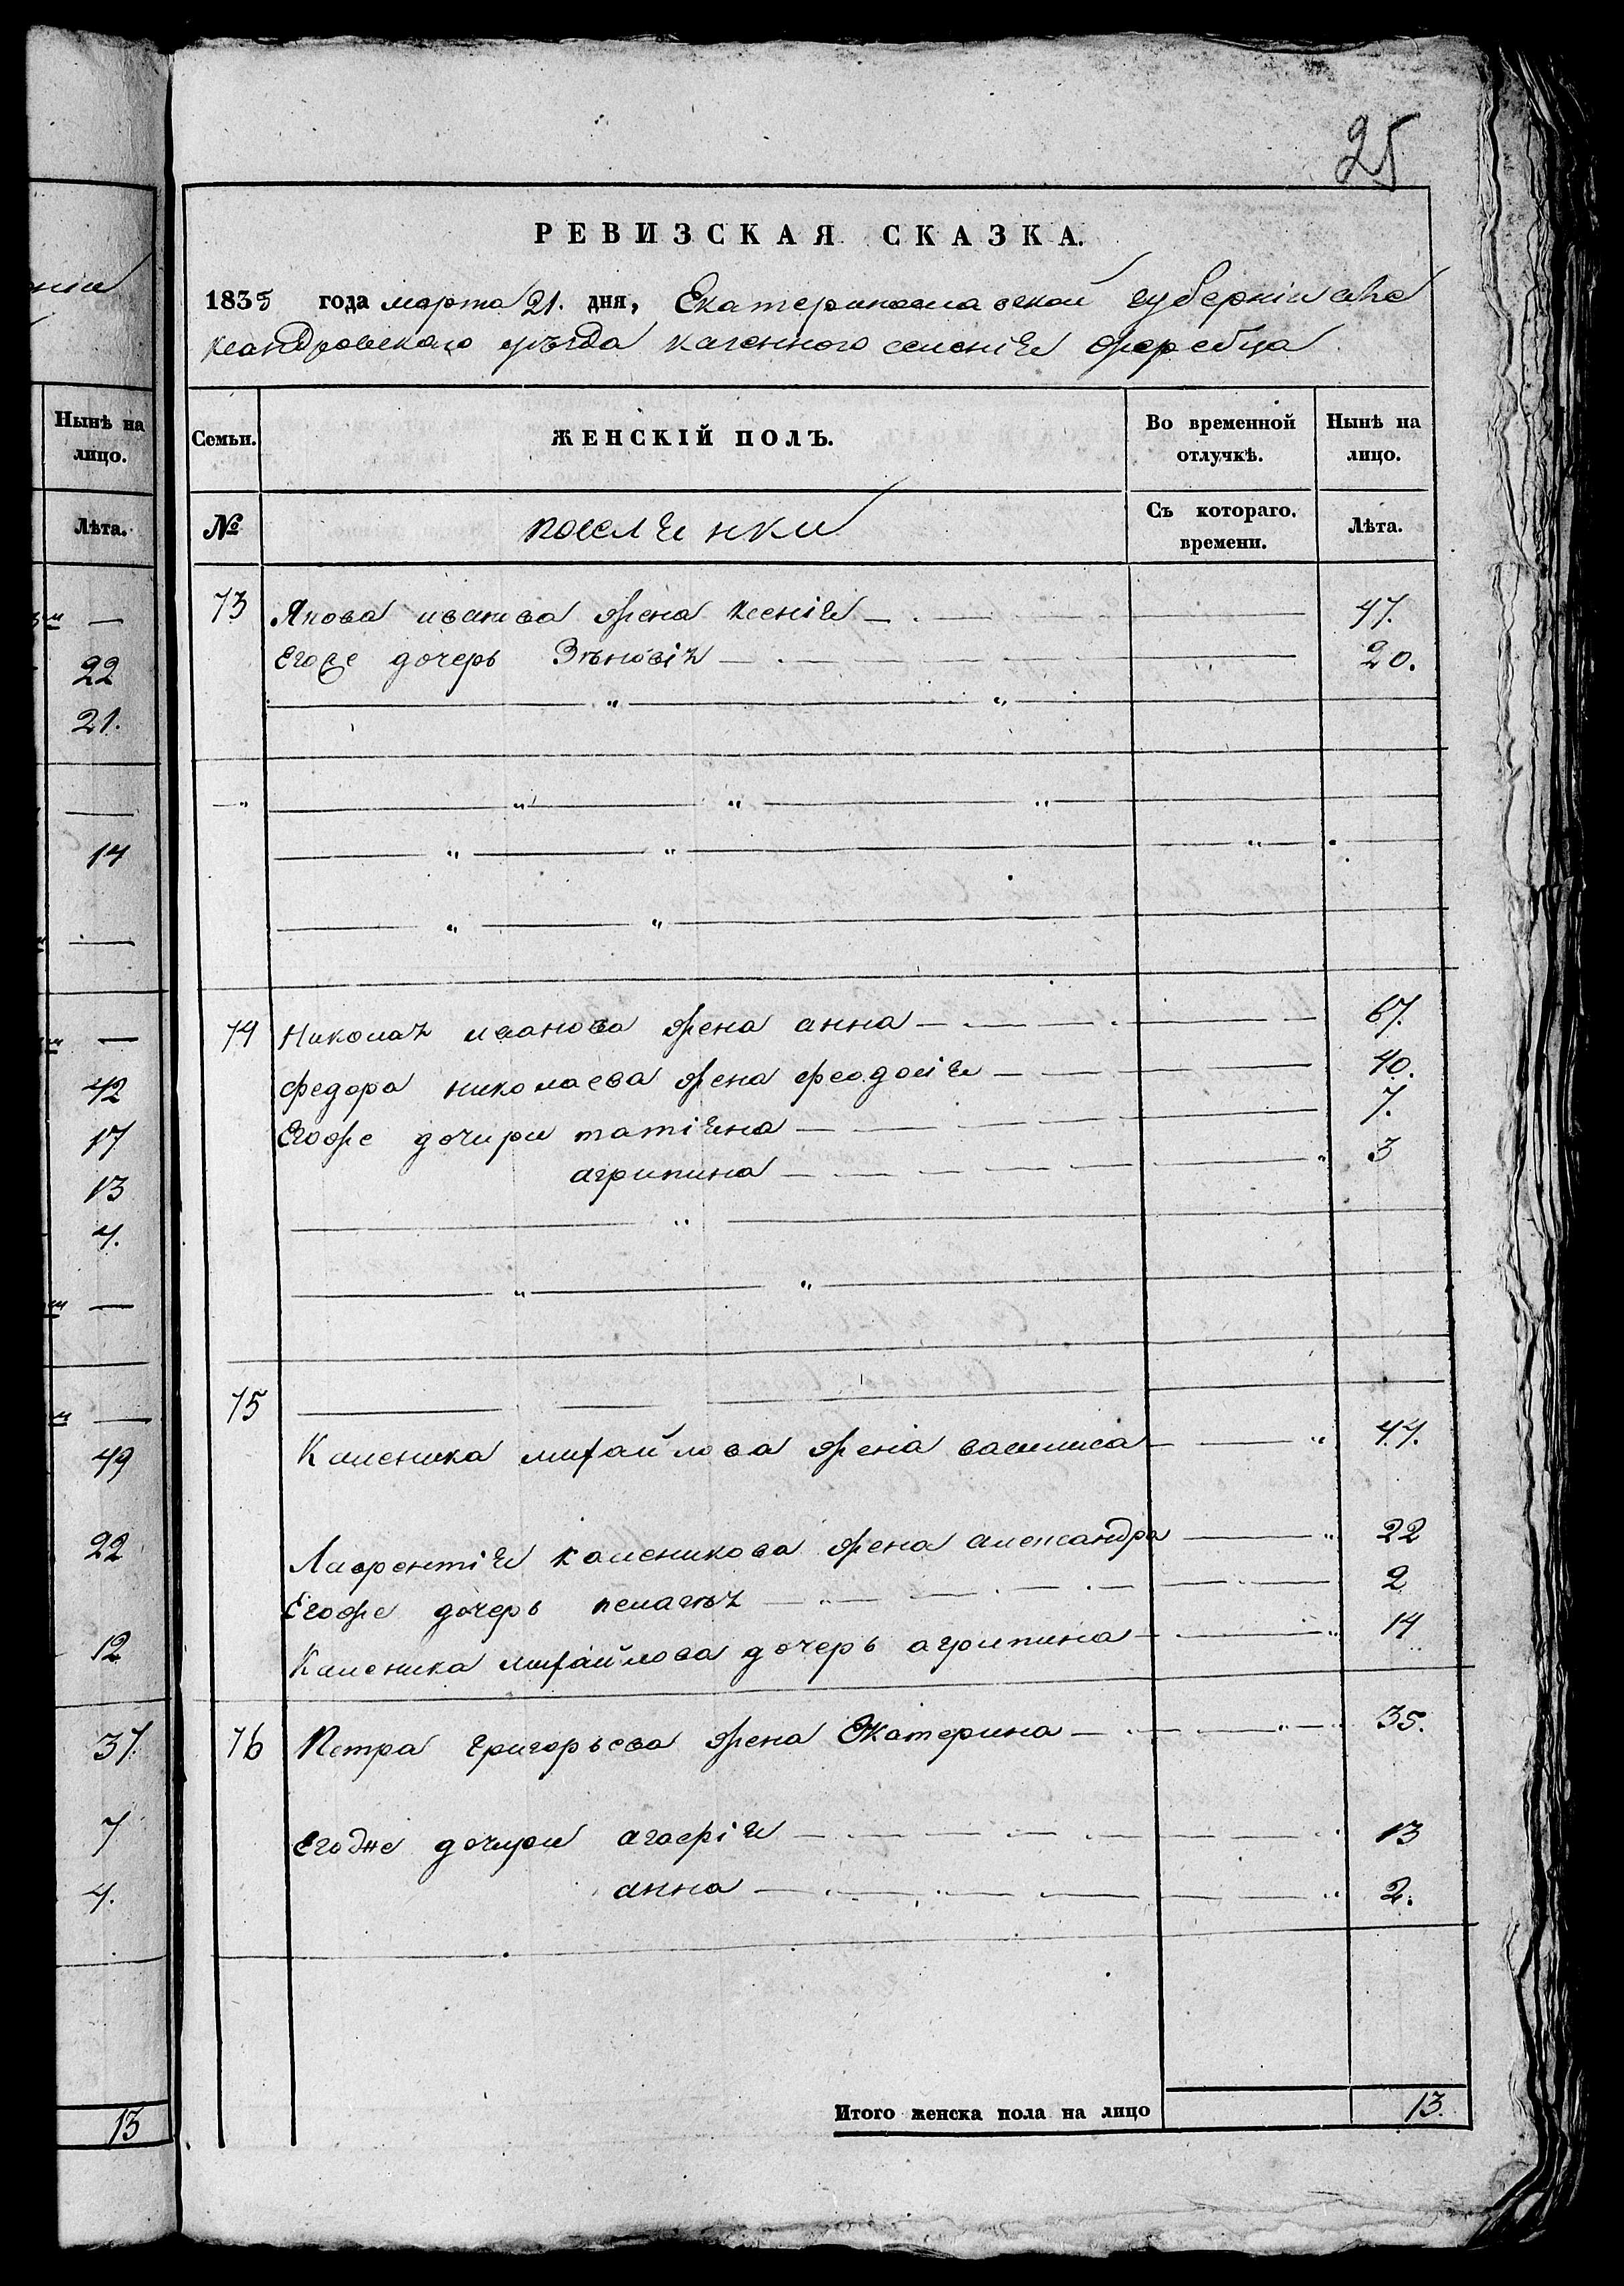 25
нія
Нынѣ на
лицо.
Лѣта.
—
22
21.
—
14
—
—
42
17
13
4.
—
—
49
22
12
37.
7
4.
13
РЕВИЗСКАЯ СКАЗКА.
1835 года марта 21. дня, Екатеринославской губерніи але
ксандровскаго уѣзда казенного селенія жеребца
Семьи.
ЖЕНСКІЙ ПОЛЪ.
Во временной
отлучкѣ.
Нынѣ на
лицо.
№
поселянки
Съ котораго.
времени.
Лѣта.
73 Якова иванова жена ксенія 47.
Егоже дочерь Зѣновія 20.
74 Николая иванова жена анна 67.
федора николаева жена феодосія 40.
Егоже дочири татіяна 7.
агрипина 3
75
Каленика михайлова жена василиса 44.
Лаврентія каленикова жена александра 22
Егоже дочерь пелагѣя 2
Каленика михайлова дочерь агрипина 14
76 Петра григорьева жена Екатерина 35.
Егоже дочири агафія 13
анна 2.
Итого женска пола на лицо 13.